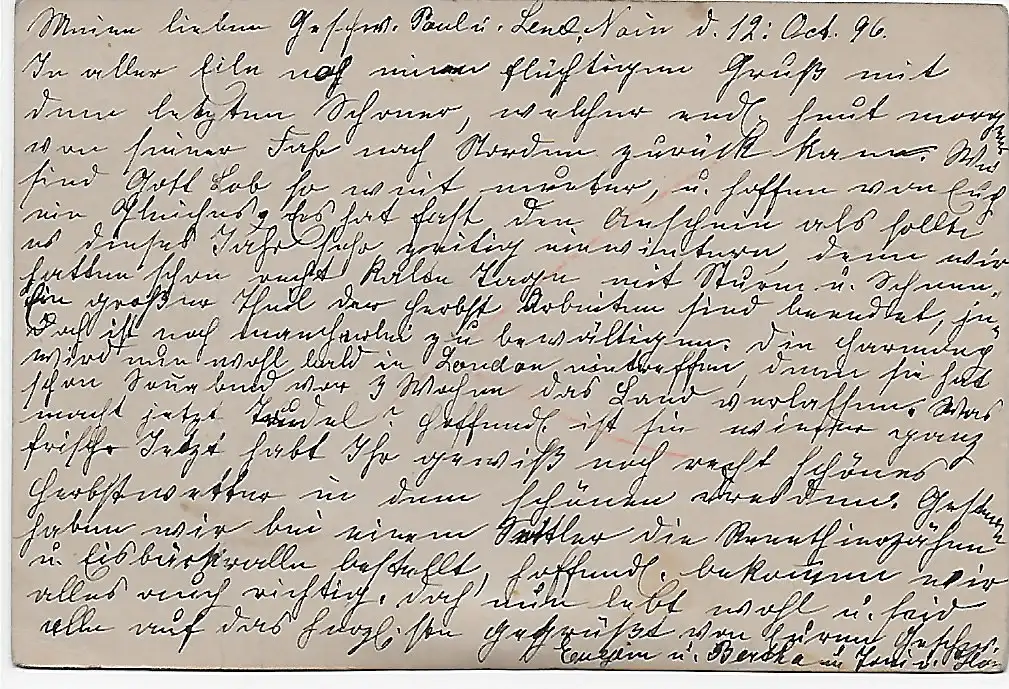 Meinen lieben Geschw. Paul u. Lend, Nain d. 12. Oct. 96.
In aller Eile noch einen flüchtigen Gruß mit
dem letzten Schoner, welcher endl. heut morgen
von seiner Fahr nach Norden zurück kam. Wir
sind Gott Lob so weit munter, u. hoffen von Euch
ein Gleiches. Es hat fast den Anschein als sollte
es dieses Jahr sehr zeitig einwintern, denn wir
hatten schon recht kalte Tage mit Sturm u. Schnee.
Ein großer Theil der Herbst Arbeiten sind beendet,
doch ist noch mancherlei zu bewältigen. Die Harmony
wird nun wohl bald in London eintreffen, denn sie hat
schon vor 3 Wochen das Land verlassen. Was
macht jetzt Trudel? Hoffendl. ist sie wieder ganz
frisch. Jetzt habt Ihr gewiß noch recht schönes
Herbstwetter in dem schönen Dresden. Gestern
haben wir bei einem Settler die Rennthierzähne
u. Eisbärkralle bestellt, hoffendl. bekommen wir
alles auch richtig. Doch nun lebt wohl u. seid
alle auf das herzlichste gegrüßt von Euren Geschw.
u. Bertha u.